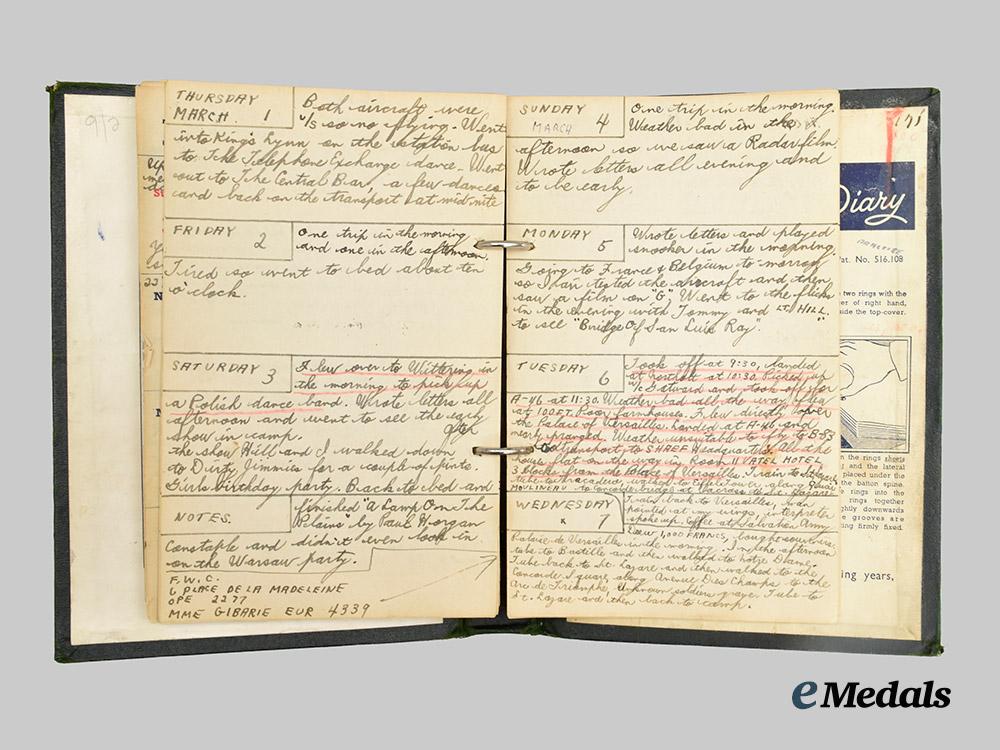 THURSDAY
MARCH 1
Both aircraft were
u/s so no flying. Went
into King's Lynn on the station bus
to The Telephone Exchange dance. Went
out to The Central Bar, a few dances
and back on the transport at midnite
FRIDAY 2
One trip in the morning
and one in the afternoon.
Tired so went to bed about ten
o'clock.
SATURDAY 3
Flew over to Wittering in
the morning to pick up
a Polish dance band. Wrote letters all
afternoon and went to see the early
show in camp. After
the show Hill and I walked down
to Dirty Jimmies for a couple of pints.
Girls birthday party. Back to bed and
NOTES.
finished "A Lamp On The
Plains by Paul Horgan
Constable and didn't even look in
on the Warsaw party.
F.W.C.
6 PLACE DE LA MADELEINE
OPE 2277
MME GIBARIE EUR 4339
SUNDAY
MARCH 4
One trip in the morning.
Weather bad in the
afternoon so we saw a Radar film.
Wrote letters all evening and
to be early.
MONDAY 5
Wrote letters and played
snooker in the morning.
Going to France & Belgium to morrow
so I air tested the aircraft and then
saw a film on "G". Went to the flicks
in the evening with Tommy and LT. HILL.
to see "Bridge Of San Luis Ray".
TUESDAY 6
Took off at 9:30, landed
at Northolt at 10:30. Picked up
W/C Gatward and took off for
A-46 at 11:30. Weather bad all the way, flew
at 100 FT. Poor farmhouses. Flew directly over
the Palace of Versailles. Landed at A-46 and
nearly pranged. Weather unsuitable to fly to B-53
so transport to SHAEF Headquarters. All the
house flat on the way in. Room 11 VATEL HOTEL
3 blocks from the Palace of Versailles. Train to
tube to Trocadero, walked to Eiffel Tower, along
MOULINEAU to Concorde bridge at across to St. Lazare
WEDNESDAY
7
Train back to Versailles, man
pointed at my wings, interpreter
spoke up. Coffee at Salvation Army
Drew 1,000 FRANCS, bought souvenirs.
Palais de Versailles in the morning. In the afternoon
tube to Bastille and then walked to Notre Dame.
Tube back to St. Lazare and then walked to the
Concorde Square, along Avenue Des Champs to the
Arc de Triomphe, Unknown soldiers grave. Tube to
St. Lazare and then back to camp.
Diary
Pat. No. 516.108
two rings with the
er of right hand,
side the top-cover.
n the rings sheets
and the lateral
placed under the
the batton spine.
e rings into the
rings together
ghtly downwards
e grooves are
ing firmly fixed.
ing years,
eMedals